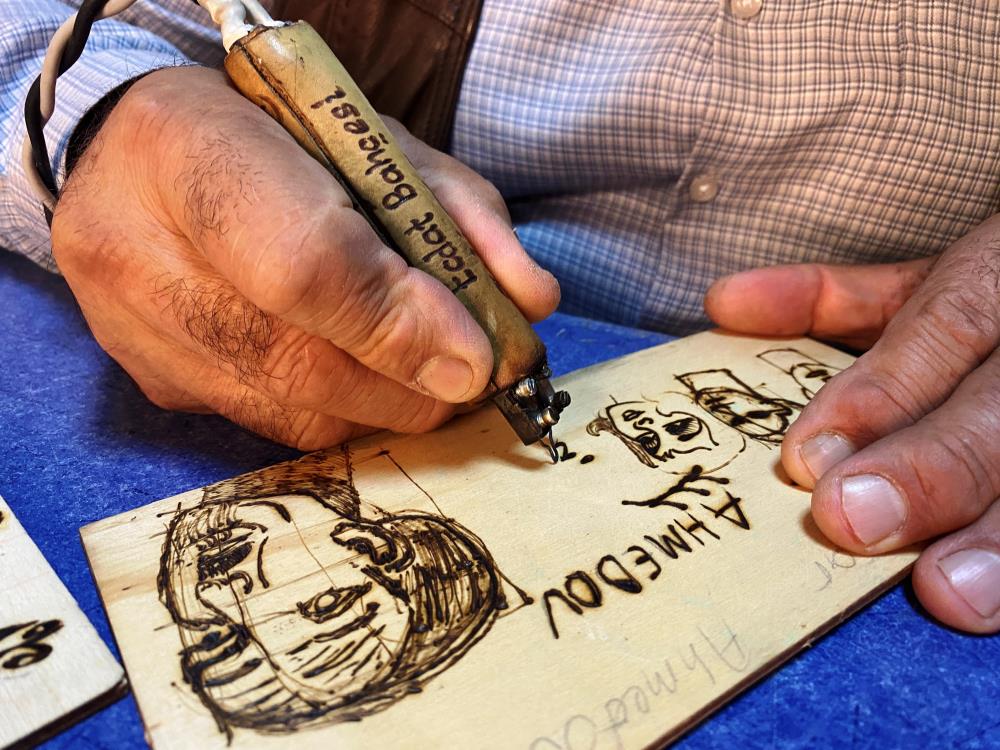 Ecdat Bahçesi
AHMEDOV
Ahmedo